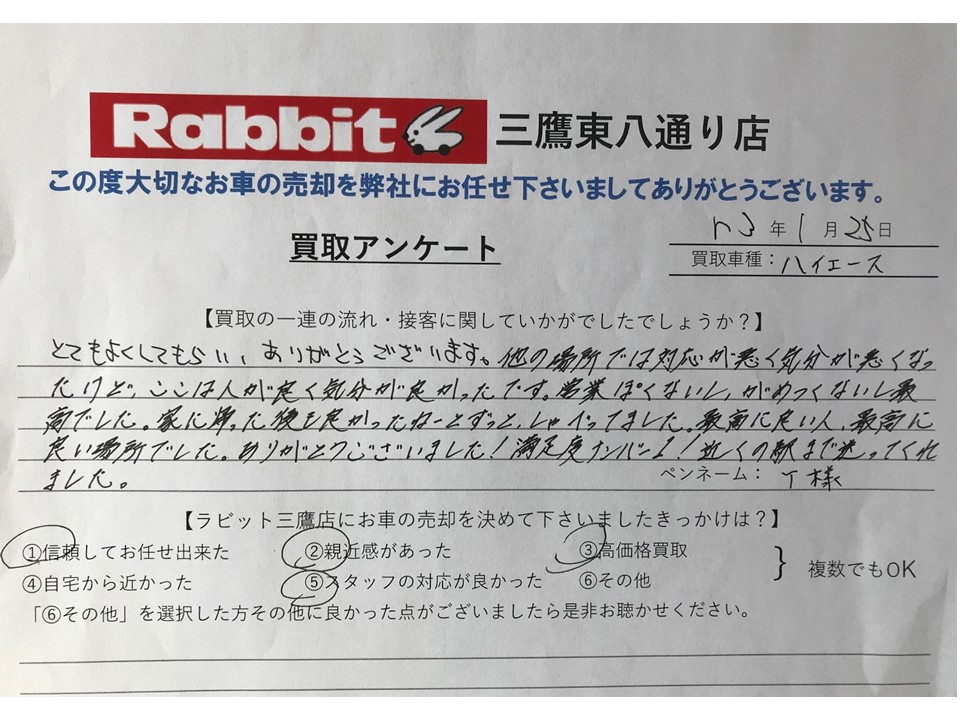 Rabbit 三鷹東八通り店
この度大切なお車の売却を弊社にお任せ下さいましてありがとうございます。
買取アンケート
R3年1月25日
買取車種：ハイエース
【買取の一連の流れ・接客に関していかがでしたでしょうか？】
とてもよくしてもらい、ありがとうございます。他の場所では対応が悪く気分が悪くなっ
たけど、ここは人が良く気分が良かったです。営業ぽくないし、がめつくないし最
高でした。家に帰った後も良かったねーとずっと、しゃべってました。最高に良い人、最高に
良い場所でした。ありがとうございました！満足度ナンバー1！近くの駅まで送ってくれ
ました。
ペンネーム：T様
【ラビット三鷹店にお車の売却を決めて下さいましたきっかけは？】
①信頼してお任せ出来た ②親近感があった ③高価格買取
④自宅から近かった ⑤スタッフの対応が良かった ⑥その他
複数でもOK
「⑥その他」を選択した方その他に良かった点がございましたら是非お聴かせください。